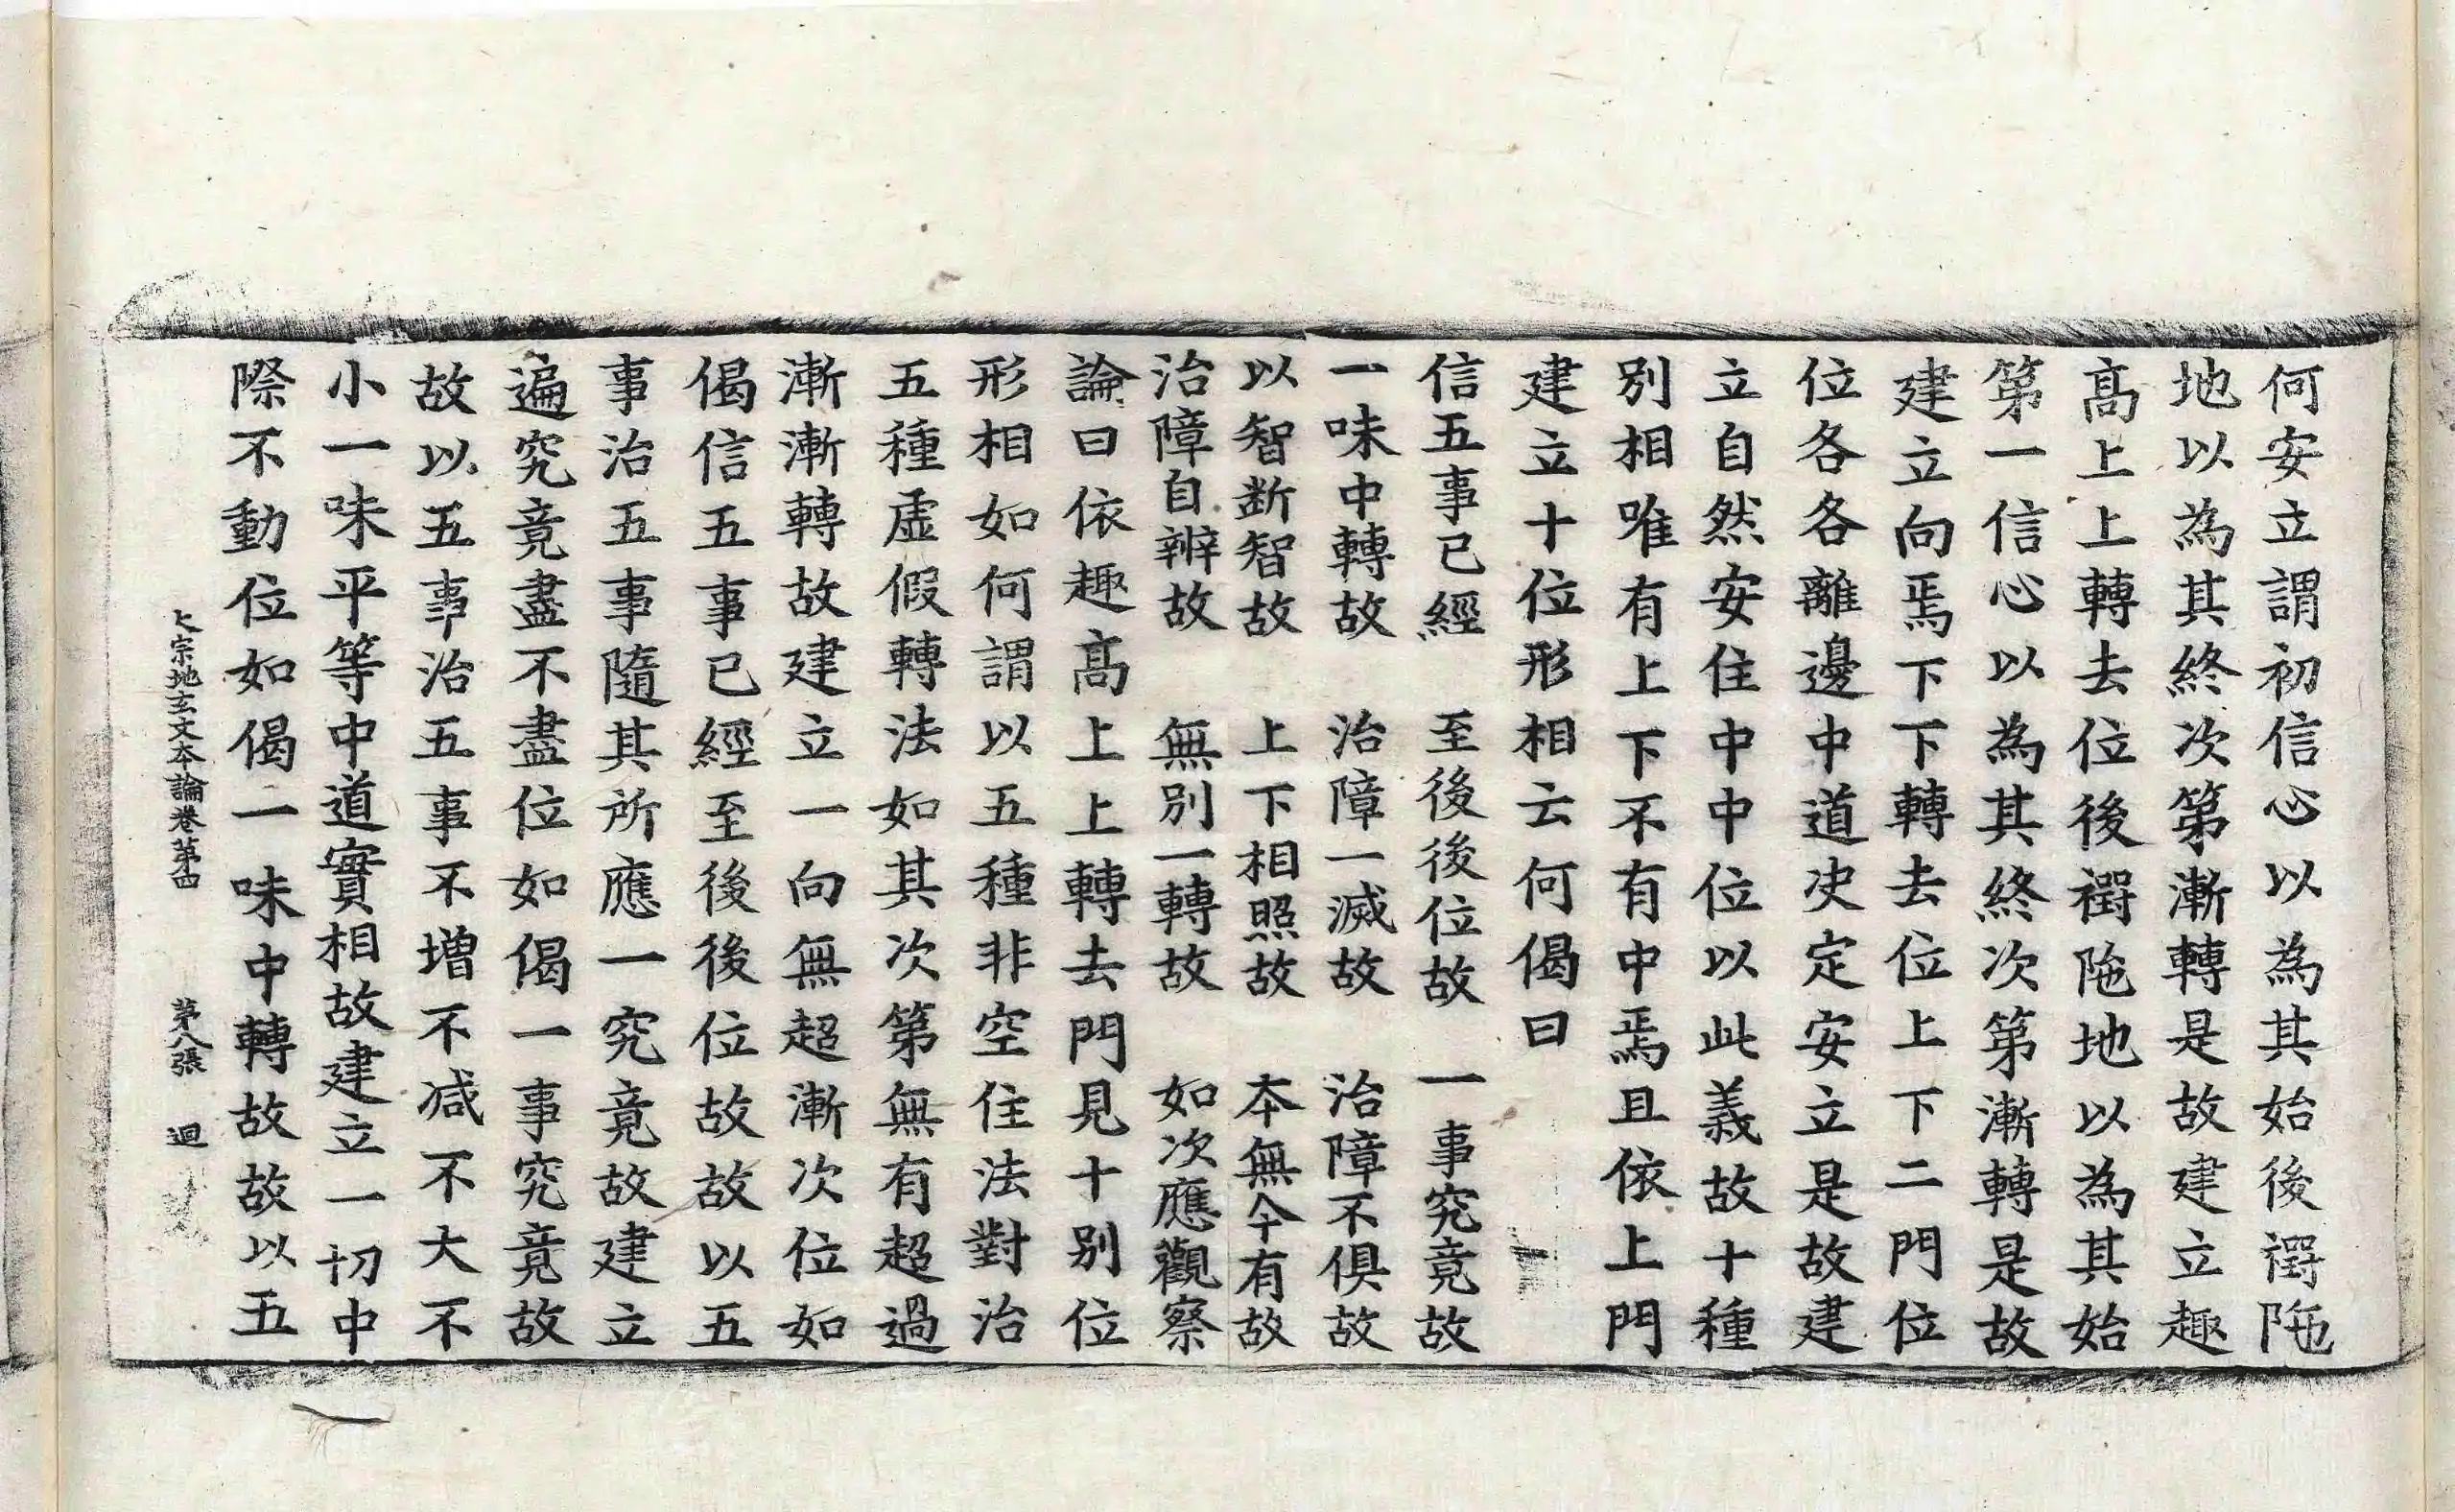 何安立謂初信心以為其始後礀陁
地以為其終次第漸轉是故建立趣
髙上上轉去位後礀陁地以為其始
第一信心以為其終次第漸轉是故
建立向焉下下轉去位上下二門位
位各各離邊中道决定安立是故建
立自然安住中中位以此義故十種
別相唯有上下不有中焉且依上門
建立十位形相云何偈曰
信五事已經　至後後位故　一事究竟故
一味中轉故　治障一滅故　治障不俱故
以智断智故　上下相照故　本無今有故
治障自辨故　無別一轉故　如次應觀察
論曰依趣髙上上轉去門見十別位
形相如何謂以五種非空住法對治
五種虛假轉法如其次第無有超過
漸漸轉故建立一向無超漸次位如
偈信五事已經至後後位故故以五
事治五事隨其所應一究竟故建立
遍究竟盡不盡位如偈一事究竟故
故以五事治五事不增不减不大不
小一味平等中道實相故建立一切中
際不動位如偈一味中轉故故以五
大宗地玄文本論卷第四　第八張　迴